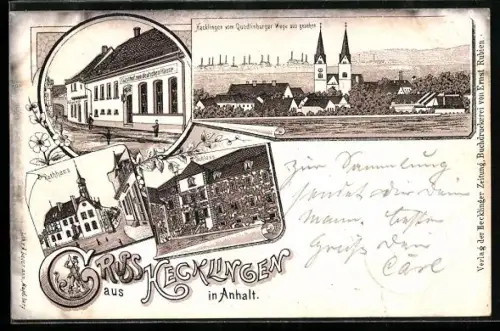 Hecklingen vom Quedlinburger Wege aus gesehen
Gasthof zum deutschen Hause
Rathhaus
Schloss
Gruss
aus Hecklingen
in Anhalt.
Zur Sammlung
sendet dir dein
Mann, beste
Grüße dein
Carl
Verlag der Hecklinger Zeitung, Buchdruckerei von Ernst Rubien